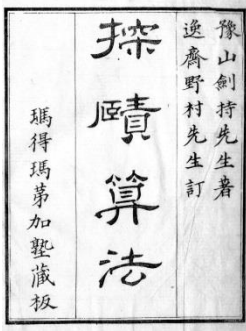 豫山劍持先生著
逸齋野村先生訂
探賾算法
瑪得瑪苐加塾藏板